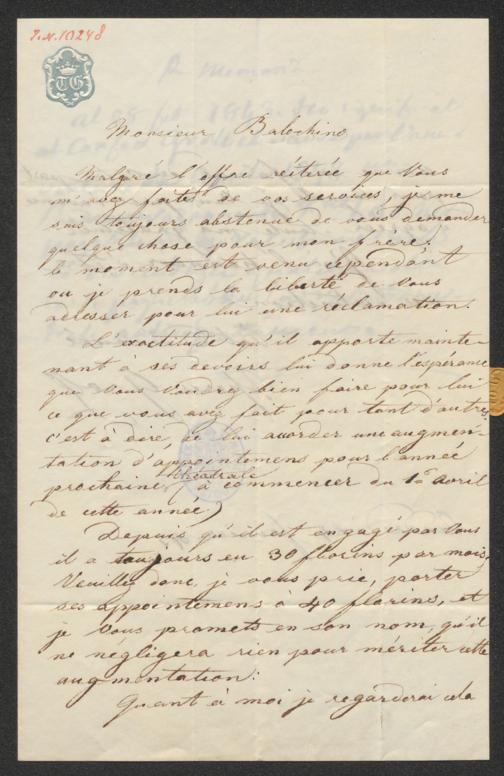 I.N.10248
TG
Monsieur Balochino
Malgré l'offre réitérée que Vous
m'avez faites de vos services, je me
suis toujours abstenue de vous demander
quelque chose pour mon frère.
le moment est venu cependant
ou je prends la liberté de Vous
adresser pour lui une réclamation.
L'exactitude qu'il apporte mainte-
nant à ses devoirs lui donne l'espérance
que Vous Voudrez bien faire pour lui
ce que vous avez fait pour tant d'autres
c'est à dire, de lui accorder une augmen-
tation d'appointemens pour l'année
théatrale
prochaine, (à commencer du 1er Avril
de cette année)
Depuis qu'il est engagé par Vous
il a toujours eu 30 florins par mois,
Veuillez donc, je vous prie, porter
ses appointemens à 40 florins, et
je Vous promets en son nom, qu'il
ne negligera rien pour mériter cette
augmentation.
Quant à moi je regarderai cela